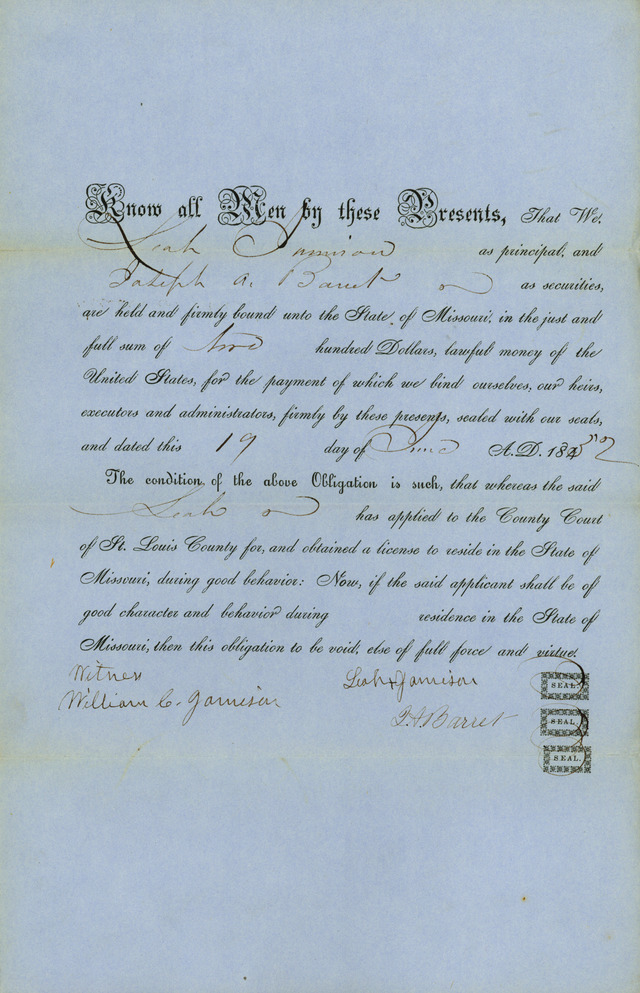 Know all Men by these Presents, That We.
Leah Jamison as principal, and
Joseph A. Barret as securities,
are held and firmly bound unto the State of Missouri, in the just and
full sum of two hundred Dollars, lawful money of the
United States, for the payment of which we bind ourselves, our heirs,
executors and administrators, firmly by these presents, sealed with our seals,
and dated this 19 day of June A.D. 18452
The condition of the above Obligation is such, that whereas the said
Leah has applied to the County Court
of St. Louis County for, and obtained a license to reside in the State of
Missouri, during good behavior: Now, if the said applicant shall be of
good character and behavior during residence in the State of
Missouri, then this obligation to be void, else of full force and virtue.
Witness Leah x Jamison SEAL.
William C. Jamison J A Barret SEAL.
SEAL.